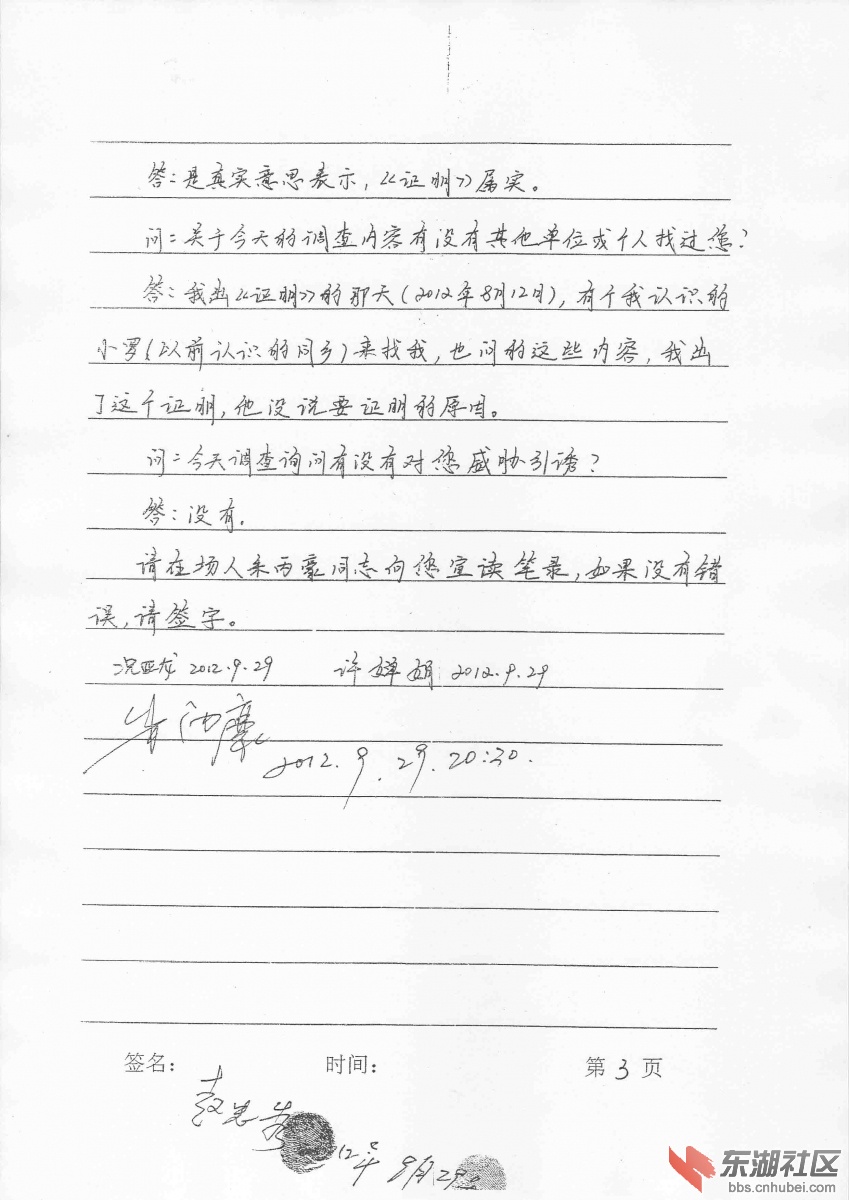 答：是真实意思表示，《证明》属实。
问：关于今天的调查内容有没有其他单位或个人找过您？
答：我出《证明》的那天（2012年8月12日），有个我认识的
小罗（以前认识的同乡）来找我，也问的这些内容，我出
了这个证明，他没说要证明的原因。
问：今天调查询问有没有对您威胁引诱？
答：没有。
请在场人朱丙豪同志向您宣读笔录，如果没有错
误，请签字。
况亚龙 2012.9.29 许婵娟 2012.9.29
朱丙豪
2012.9.29.20:30.
签名： 时间： 第3页
12年9月29
东湖社区
bbs.cnhubei.com